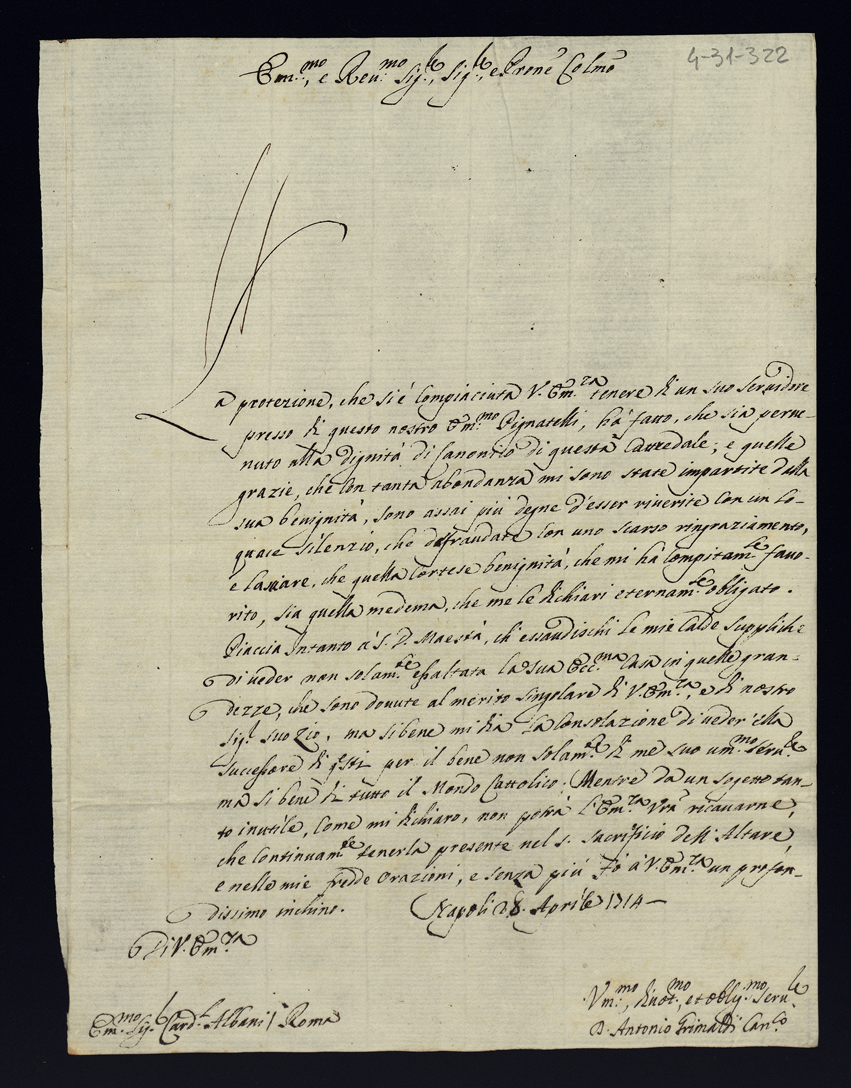 Em.mo, e Reu.mo Sig.re, Sig.re, e Prone Colmo
4-31-322
La protezione, che si é compiaciuta V. Em.za tenere di un suo servidore
presso di questo nostro Em.mo Pignatelli, há fatto, che sia perve-
nuto alla dignitá di Canonico di questa Catredale; e quelle
grazie, che con tanta abondanza mi sono state impartite dalla
sua benignitá, sono assai piú degne d'esser riverite con un lo-
quace silenzio, che defraudate con uno scarso ringraziamento,
e lasciare, che quella cortese benignitá, che mi há compitam.te favo-
rito, sia quella medema, che me le dichiari eternam.te obligato.
Piaccia Intanto á S. D. Maestá, ch'essaudischi le mie calde suppliche
di veder non solam.te essaltata la sua Ecc.ma Casa in quelle gran-
dezze, che sono dovute al merito singolare di V. Em.za, e di nostro
Sig.re suo Zio, ma sibene mi dia la Consolazione di veder'ella
successore di q'sti per il bene non solam.te di me suo um.mo seru.re
má si bene di tutto il Mondo Cattolico; Mentre da un sogetto tan-
to inutile, come mi dichiaro, non potrá l'Em.za Vrã ricavarne,
che continuam.te tenerla presente nel s. sacrificio dell'Altare,
e nelle mie fredde orazioni, e senza piú fó á V. Em.za un profon-
dissimo inchino. Napoli 28. Aprile 1714
Di V. Em.za
Vm.mo, diuot.mo, et obblig.mo seru.re
Em.mo Sig.r Card.l Albani / Roma
D. Antonio Grimaldi Can.co